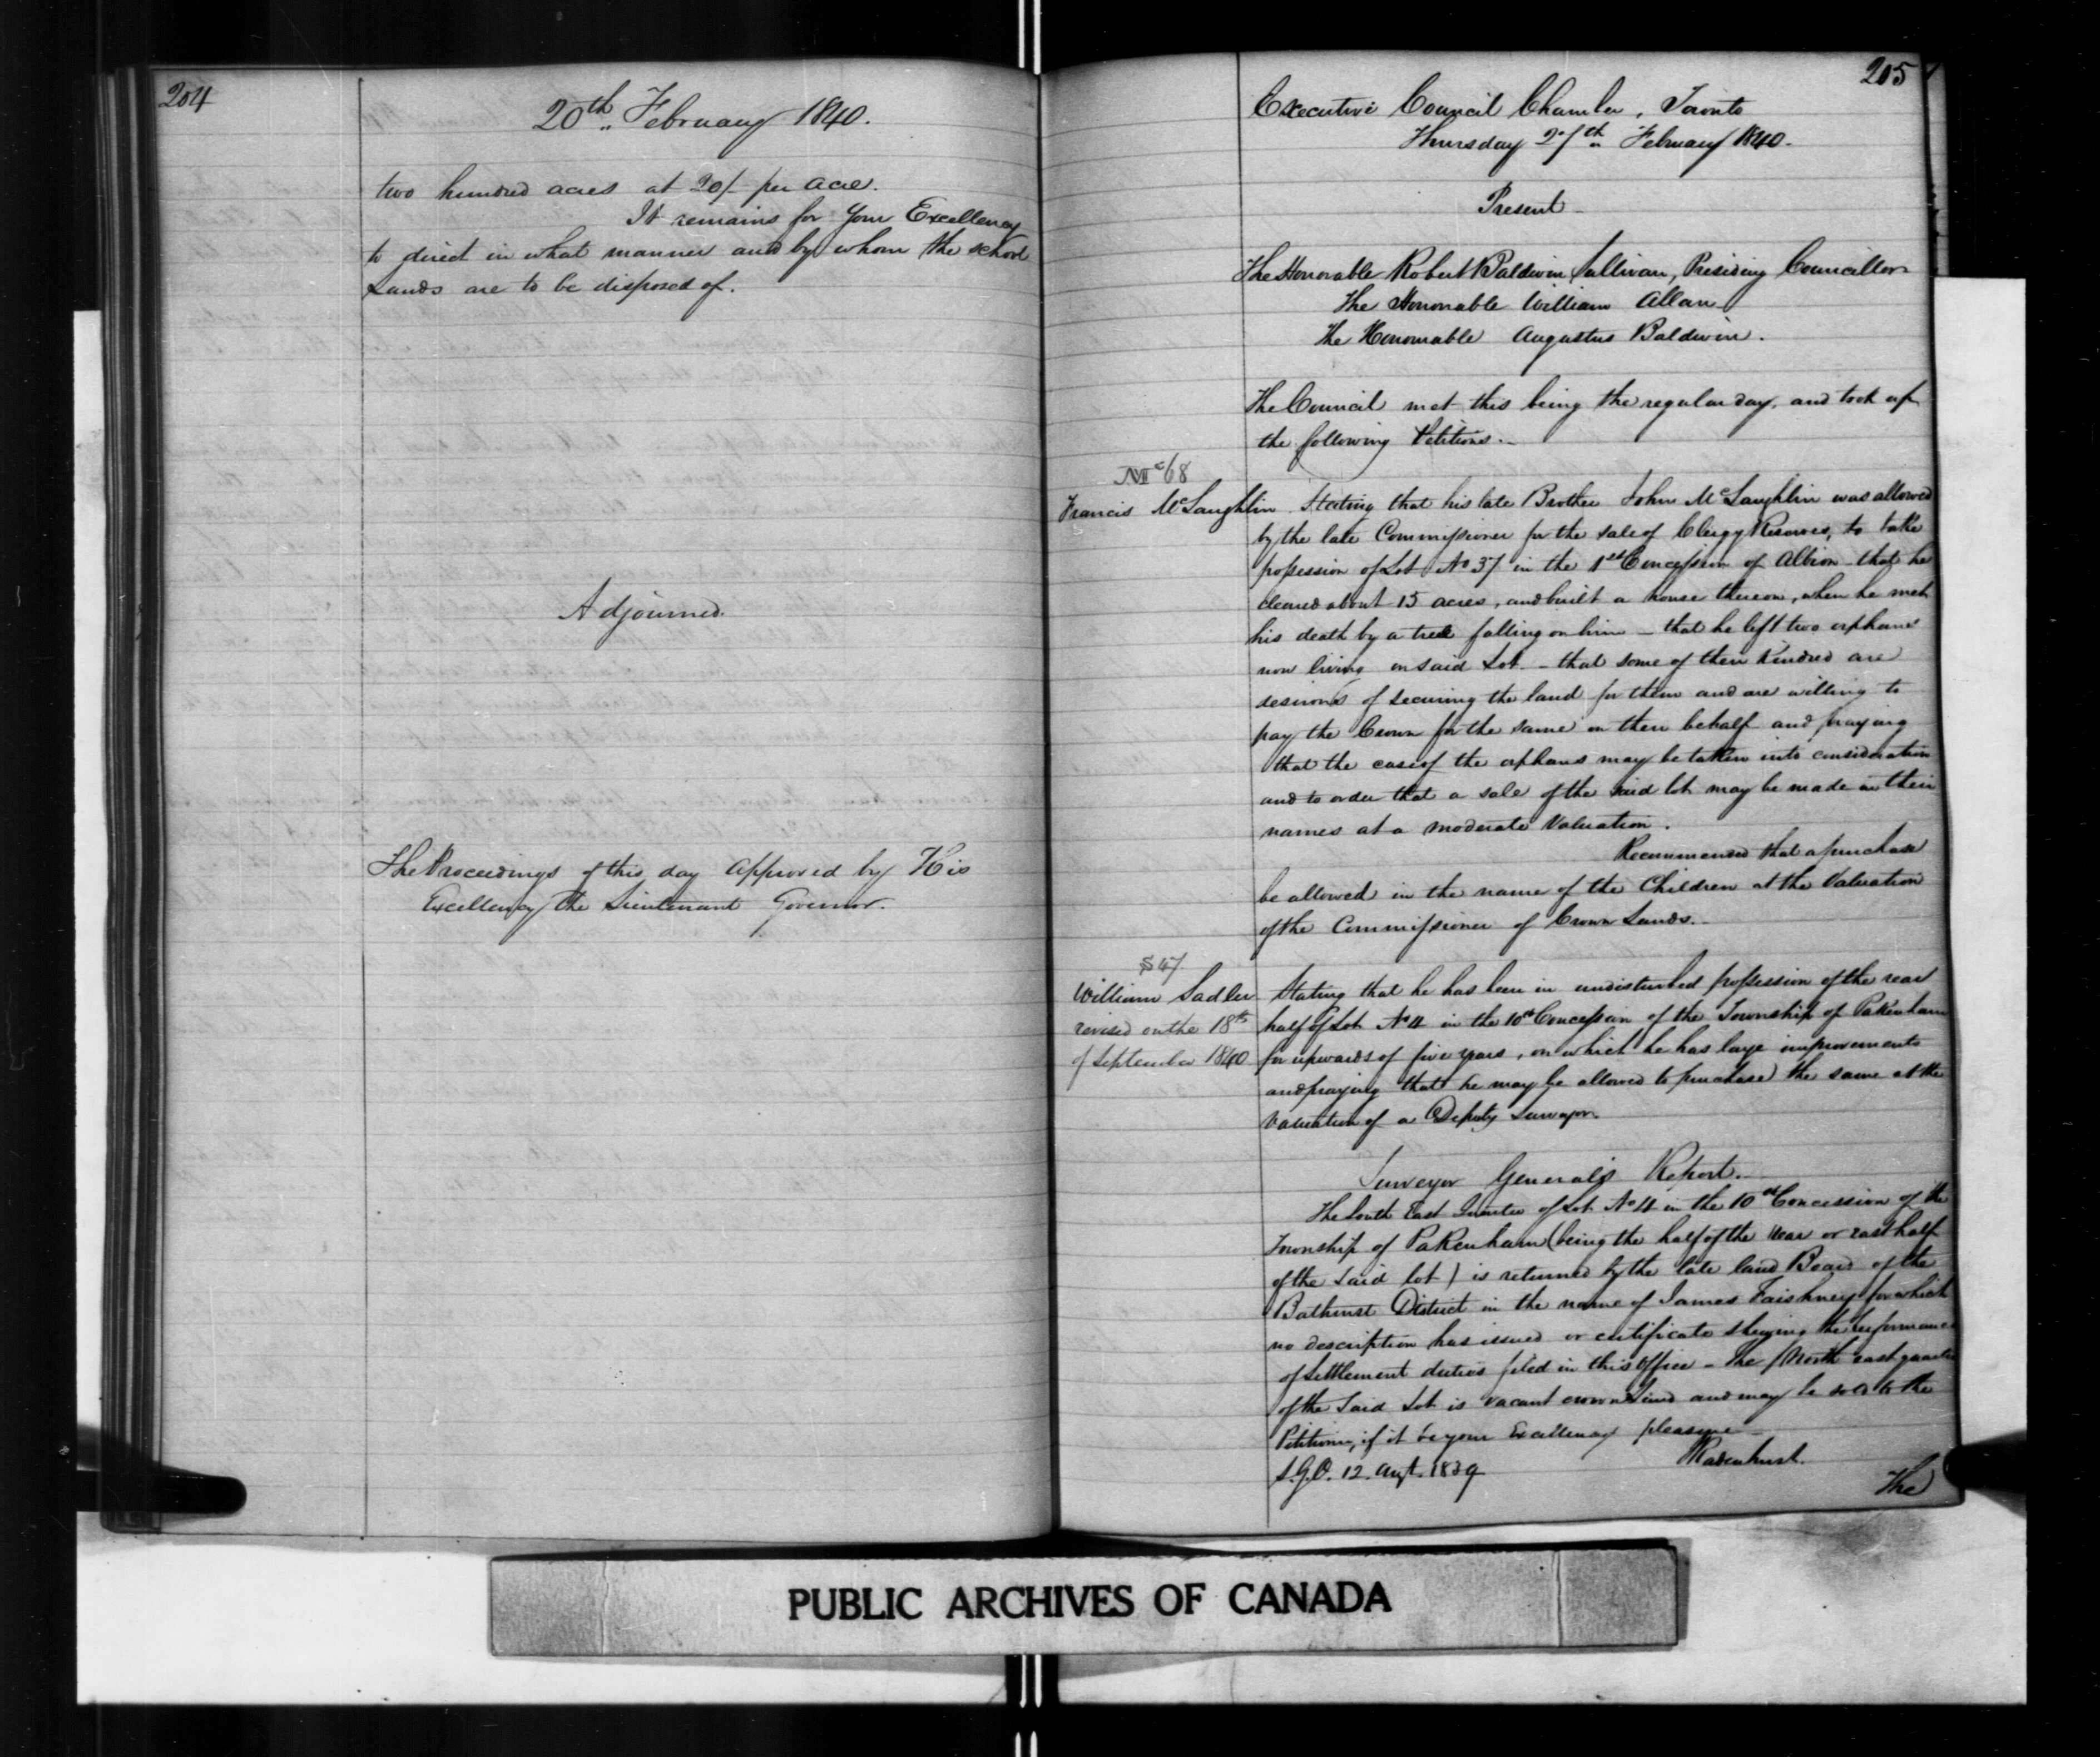 204
20th February 1840.
two hundred acres at 20/- per acre.
It remains for Your Excellency
to direct in what manner and by whom the school
Lands are to be disposed of.
Adjourned.
The Proceedings of this day approved by His
Excellency the Lieutenant Governor.
205
Executive Council Chamber, Toronto
Thursday 27th February 1840.
Present
The Honorable Robert Baldwin Sullivan, Presiding Councillor
The Honorable William Allan
The Honourable Augustus Baldwin.
The Council met this being the regular day, and took up
the following Petitions.
Mc 68
Francis McLaughlin Stating that his late Brother John McLaughlin was allowed
by the late Commissioner for the sale of Clergy Reserves, to take
possession of Lot No 37 in the 1st Concession of Albion - that he
cleared about 15 acres, and built a house thereon, when he met
his death by a tree falling on him - that he left two orphans
now living on said Lot - that some of their Kindred are
desirous of securing the land for them and are willing to
pay the Crown for the same on their behalf and praying
that the case of the orphans may be taken into consideration
and to order that a sale of the said lot may be made in their
names at a moderate Valuation.
Recommended that a purchase
be allowed in the name of the Children at the Valuation
of the Commissioner of Crown Lands.
S 47
William Sadler
revised on the 18th
of September 1840
Stating that he has been in undisturbed possession of the rear
half of Lot No 4 in the 10th Concession of the Township of Pakenham
for upwards of five years, on which he has large improvements
and praying that he may be allowed to purchase the same at the
valuation of a Deputy Surveyor.
Surveyor General's Report.
The South East Quarter of Lot No 4 in the 10th Concession of the
Township of Pakenham (being the half of the rear or east half
of the said lot) is returned by the late land Board of the
Bathurst District in the name of James Faishney for which
no description has issued or certificate shewing the performance
of Settlement duties filed in this Office - The North east quarter
of the said Lot is vacant crown Land and may be sold to the
Petitioner, if it be your Excellency pleasure
S.G.O. 12. Augt. 1839 Radenhurst.
The
PUBLIC ARCHIVES OF CANADA